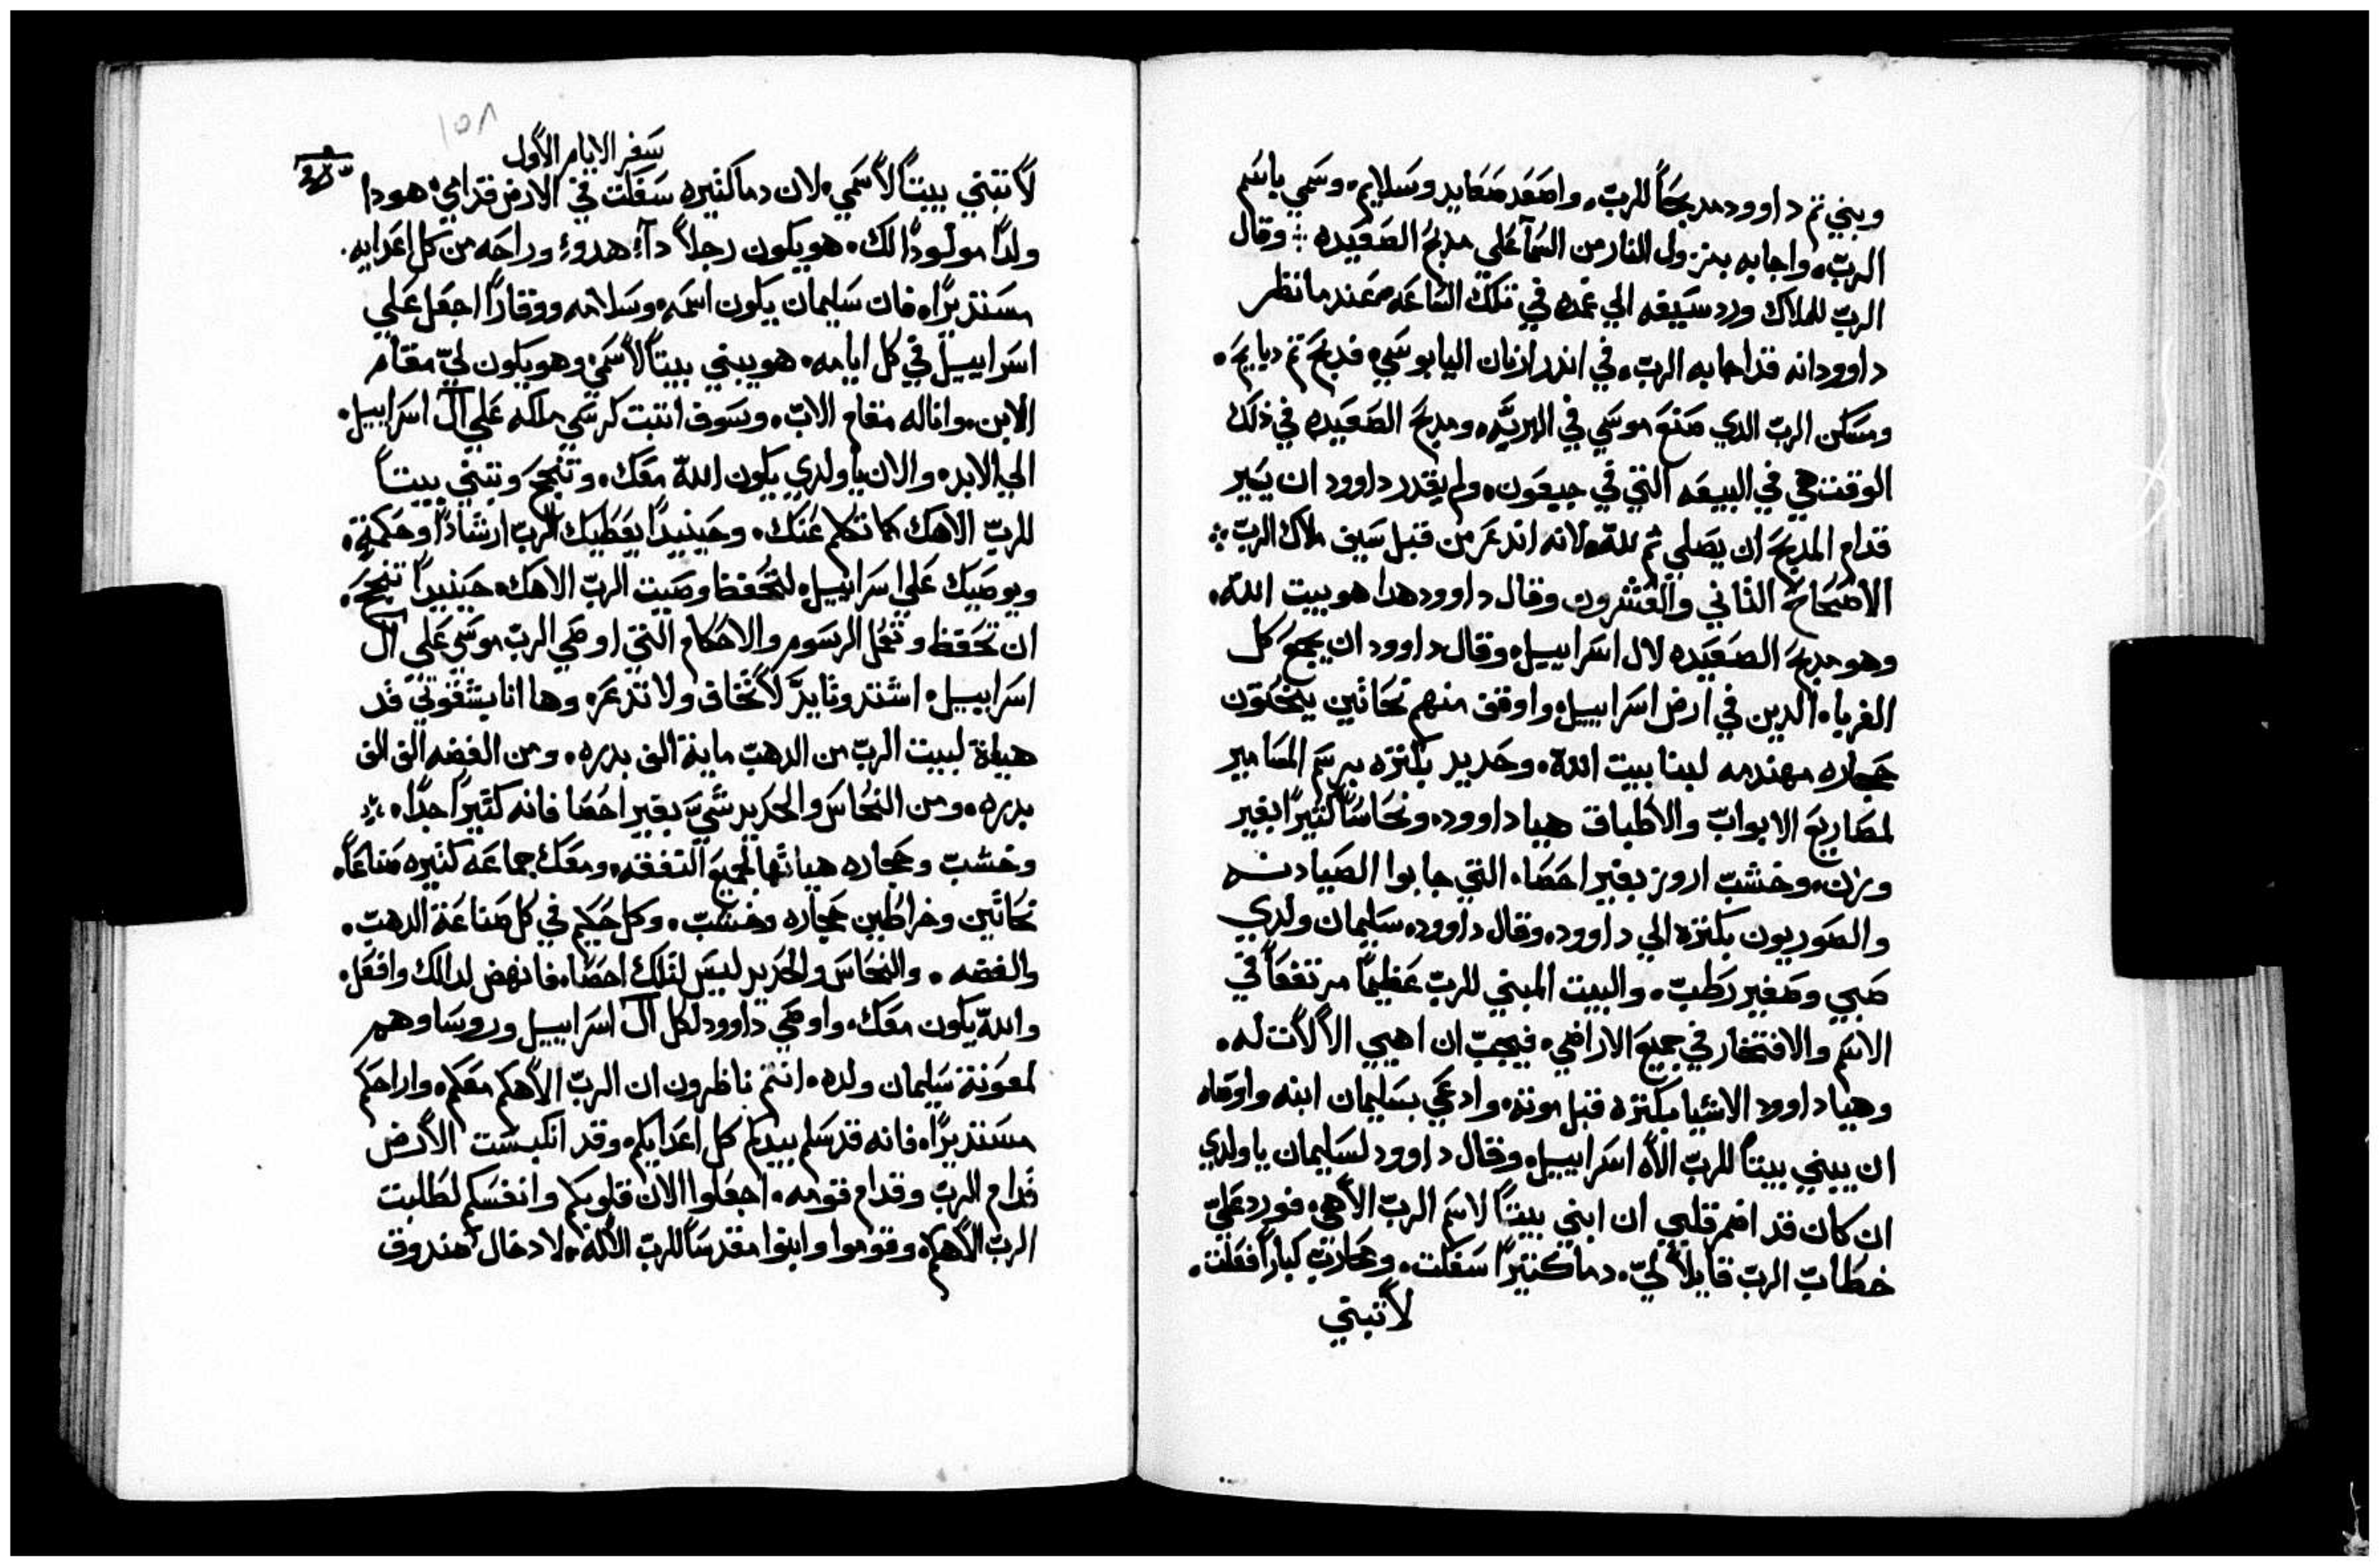 وبني تم داوود مدبحًا للربّ. واصعد صعايد وسلايم. وسمي باسم
الربّ. واجابه بنزول النار من السمآ علي مدبح الصعيده ⁘ وقال
الربّ للملاك ورد سيفه الي غمده في تلك الساعه عندما نظر
داوود انه قد اجابه الربّ. في اندر ارنان اليابوسي. فدبح تم دبايح.
ومسكن الربّ الدي صنع موسي في البريّه. ومدبح الصعيده في ذلك
الوقت هي في البيعه التي في جبعون. ولم يقدر داوود ان يسير
قدام المدبح ان يصلي ثم للّه. لانه اندعر من قبل سيف ملاك الربّ ⁘
الاصحاح الثاني والعشرون وقال داوود هدا هو بيت اللّه.
وهو مدبح الصعيده لال اسراييل. وقال داوود ان يجمع كل
الغرباء الدين في ارض اسراييل. واوقف منهم نحاتين ينحتون
حجاره مهندمه لبنا بيت اللّه. وحديد بكتره برسم المسامير
لمصاريع الابوابّ والاطباق هيا داوود. ونحاسًا كتيرًا بغير
وزن. وخشبّ اروز بغير احصا. التي جابوا الصيادنه
والصوريون بكتره الي داوود. وقال داوود. سليمان ولدي
صبي وصغير رطبّ. والبيت المبني للربّ عظيمًا مرتفعًا في
الاسم والافتخار في جميع الاراضي. فيجبّ ان اهيي الالات له.
وهيا داوود الاشيا بكتره قبل موته. وادعي بسليمان ابنه واوصاه
ان يبني بيتًا للربّ الاه اسراييل. وقال داوود لسليمان ياولدي
ان كان قد اضمر قلبي ان ابني بيتًا لاسم الربّ الاهي. فورد عليّ
خطابّ الربّ قايلاً ليّ. دما كتيرًا سفكت. ومحاربّ كبارًا فعلت.
لا تبني
١٥٨
سفر الايام الاول
لا تبتني بيتًا لاسمي. لان دما كتيره سفكت في الارض قدامي. هودا
ولدًا مولودًا لك. هو يكون رجلاً دآء هدوء وراحه من كل اعدايه.
مستديرًا. فان سليمان يكون اسمه. وسلامه ووقارًا اجعل علي
اسراييل في كل ايامه. هو يبني بيتًا لاسمي. وهو يكون ليّ مقام
الابن. وانا له مقام الابّ. وسوف اتبت كرسي ملكه علي آل اسراييل.
الي الابد. والان ياولدي يكون اللّه معك. وتنجح وتبني بيتًا
للربّ الاهك كما تكلم عنك. وحينيدًا يعطيك الربّ ارشادًا وحكمة.
ويوصيك علي اسراييل. لتحفظ وصيت الربّ الاهك. حينيدًا تنجح.
ان تحفظ وتعمل الرسوم والاحكام التي اوصي الربّ موسي علي آل
اسراييل. اشتد وتايدّ لا تخاف ولا تدعر. وها انا بشقوتي قد
هياة لبيت الربّ من الدهبّ ماية الف بدره. ومن الفضه الف الف
بدره. ومن النحاس والحديد شيّ بغير احصا فانه كتيرًا جدًا. ⁘
وخشبّ وحجاره هياتها لجميع النفقه. ومعك جماعه كتيره صناعًا.
نحاتين وخراطين حجاره وخشبّ. وكل حكيم في كل صناعة الدهبّ.
والفضه. والنحاس والحديد ليس لتلك احصا. فانهض لدالك وافعل.
واللّه يكون معك. واوصي داوود لكل آل اسراييل وروساوهم
لمعونة سليمان ولده. انتم ناظرون ان الربّ الاهكم معكم. واراحكم
مستديرًا. فانه قد سلم بيدكم كل اعدايكم. وقد انكبست الارض
قدام الربّ وقدام قومه. اجعلوا الان قلوبكم وانفسكم لطلبت
الربّ الاهكم. وقوموا وابنوا مقدسًا للربّ الاله. لادخال صندوق